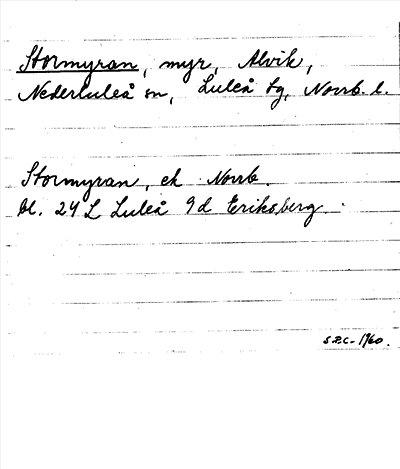 Stormyran, myr, Alvik,
Nederluleå sn, Luleå tg, Norrb. l.
Stormyran, ek Norrb.
bl. 24 L Luleå 9d Eriksberg.
S.P.C. 1960.